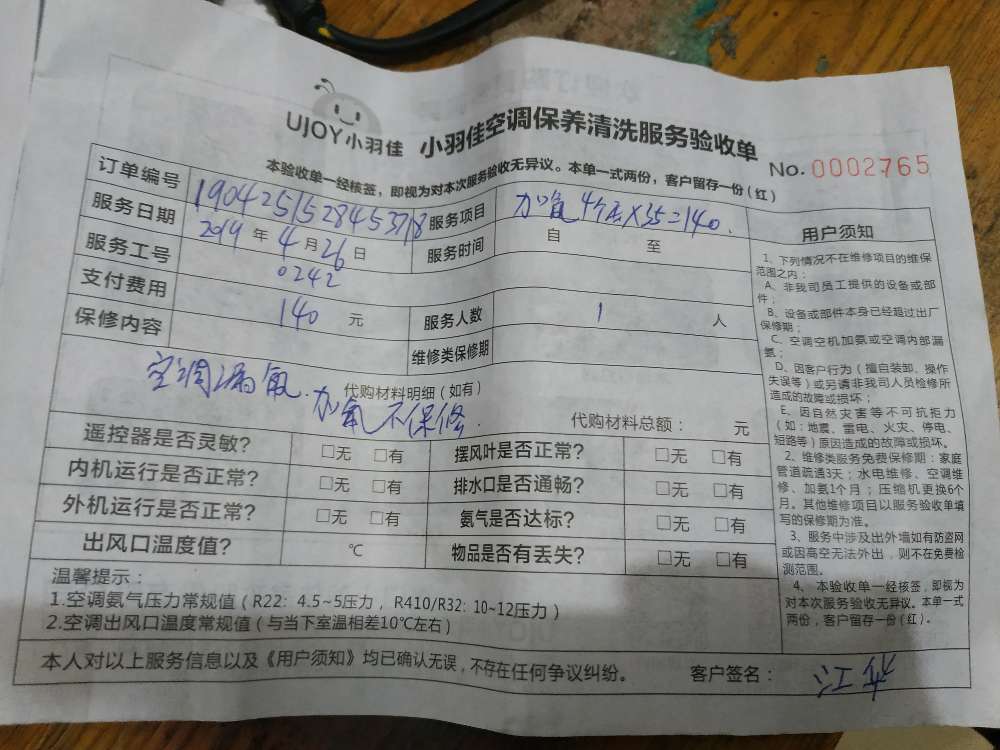 UJOY小羽佳 小羽佳空调保养清洗服务验收单
No. 0002765
本验收单一经核签，即视为对本次服务验收无异议。本单一式两份，客户留存一份(红)
订单编号 190425152845378 服务项目 加氟4个压X35=140.
服务日期 2019 年 4 月 26 日 服务时间 自 至
服务工号 0242
支付费用 140 元 服务人数 1 人
保修内容 维修类保修期
空调漏氟. 加氟不保修.
代购材料明细(如有) 代购材料总额： 元
遥控器是否灵敏? □无 □有 摆风叶是否正常? □无 □有
内机运行是否正常? □无 □有 排水口是否通畅? □无 □有
外机运行是否正常? □无 □有 氨气是否达标? □无 □有
出风口温度值? ℃ 物品是否有丢失? □无 □有
温馨提示：
1.空调氨气压力常规值(R22: 4.5~5压力，R410/R32: 10~12压力)
2.空调出风口温度常规值(与当下室温相差10℃左右)
本人对以上服务信息以及《用户须知》均已确认无误，不存在任何争议纠纷。 客户签名：
用户须知
1、下列情况不在维修项目的维保
范围之内：
A、非我司员工提供的设备或部
件；
B、设备或部件本身已经超过出厂
保修期；
C、空调空机加氨或空调内部漏
氨；
D、因客户行为(擅自装卸、操作
失误等)或另请非我司人员检修所
造成的故障或损坏；
E、因自然灾害等不可抗拒力
(如：地震、雷电、火灾、停电、
短路等)原因造成的故障或损坏。
2、维修类服务免费保修期：家庭
管道疏通3天；水电维修、空调维
修、加氨1个月；压缩机更换6个
月。其他维修项目以服务验收单填
写的保修期为准。
3、服务中涉及出外墙如有防盗网
或因高空无法外出，则不在免费检
测范围。
4、本验收单一经核签，即视为
对本次服务验收无异议。本单一式
两份，客户留存一份(红)。